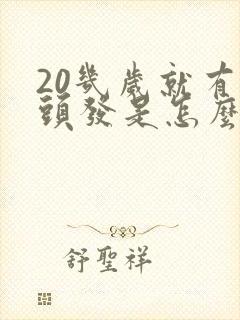 20幾歲就有
頭發是怎麼
舒聖祥